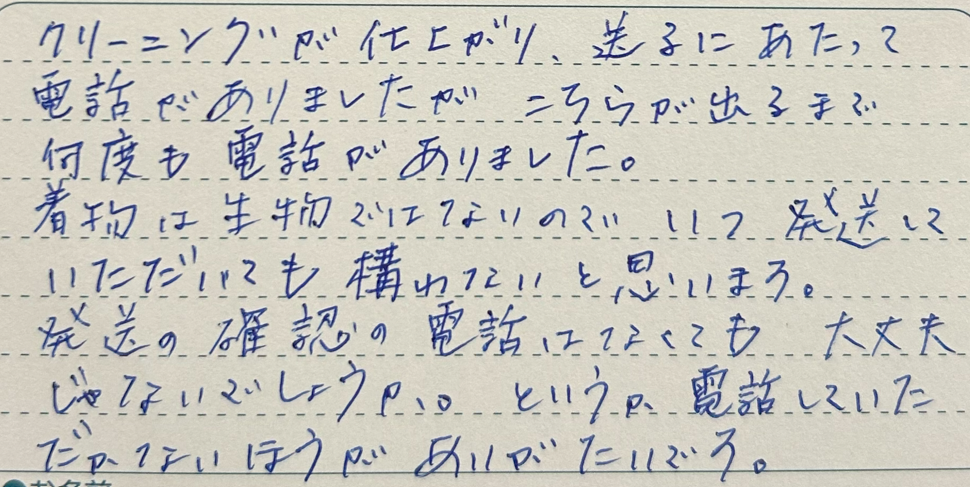 クリーニングが仕上がり、送るにあたって
電話がありましたが こちらが出るまで
何度も電話がありました。
着物は生物ではないので いつ発送して
いただいても構わないと思います。
発送の確認の電話はなくても 大丈夫
じゃないでしょうか。というか、電話していた
だかないほうが ありがたいです。